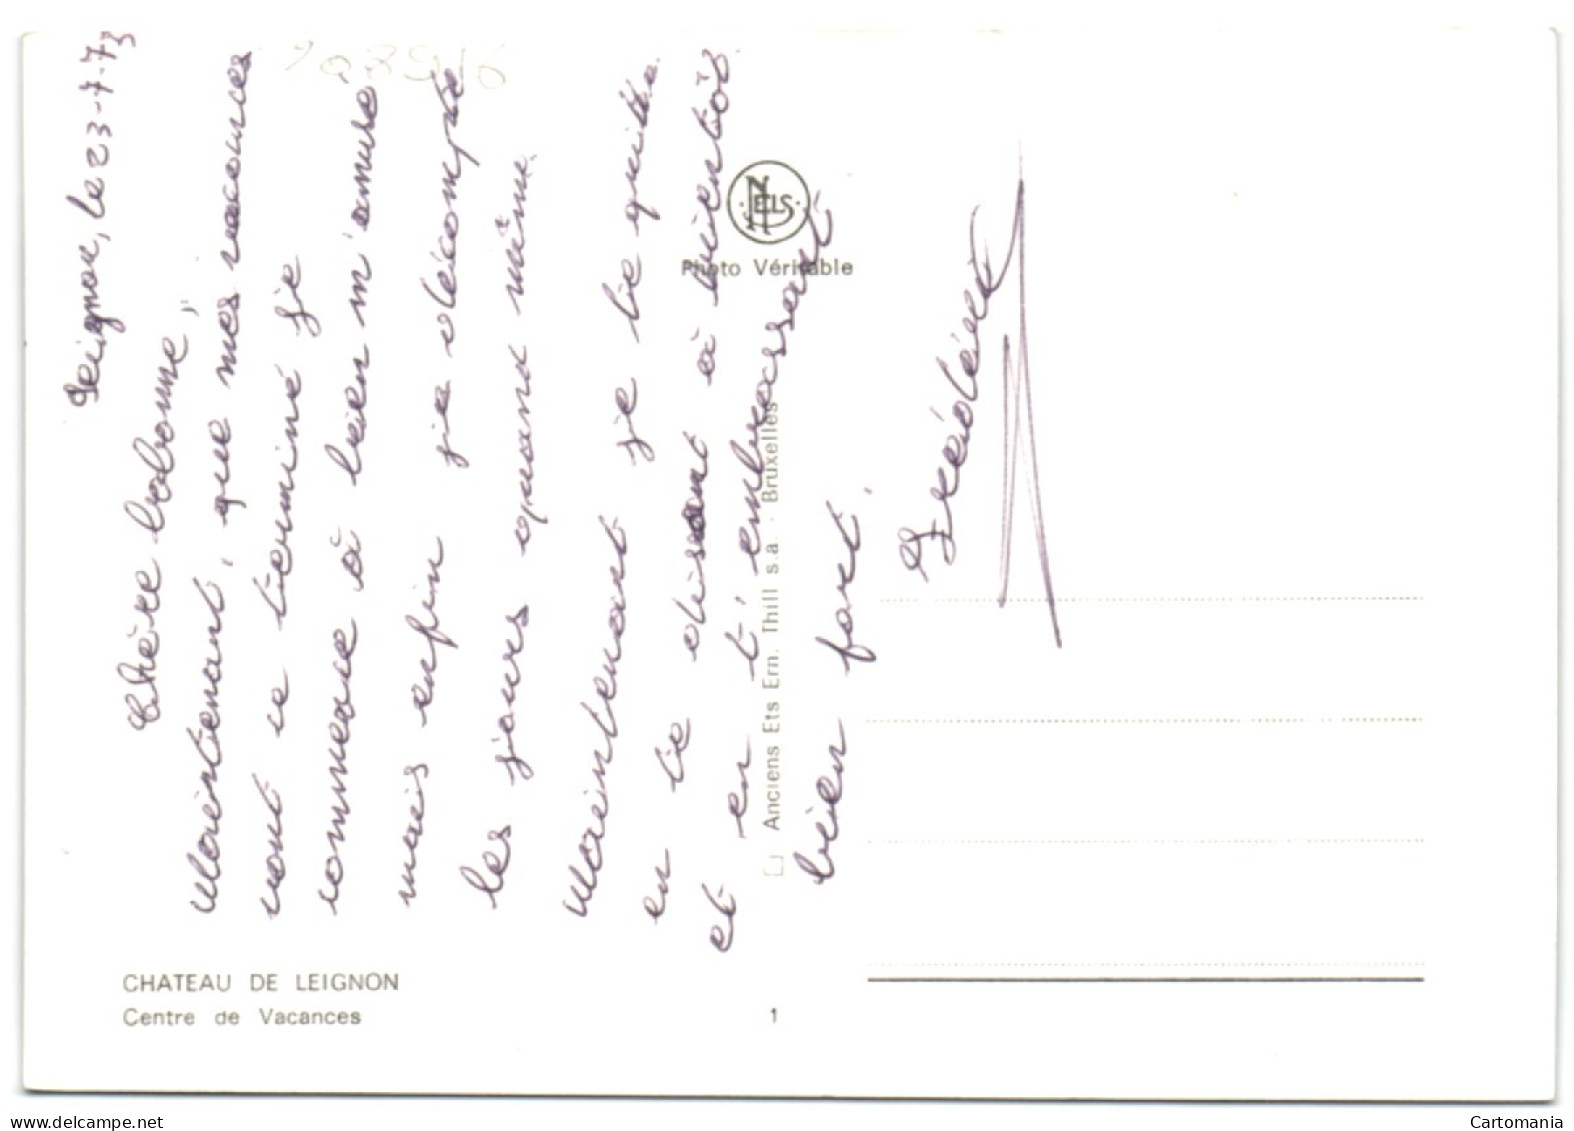 Leignon, le 23-7-73
Chère bobonne,
Maintenant, que mes vacances
vont ce terminé je
commence à bien m'amusé
mais enfin je décompte
les jours quand même.
Maintenant je te quitte
en te disant à bientôt
et en t'embrassant
bien fort.
Frédéric
CHATEAU DE LEIGNON
Centre de Vacances
1
NELS
Photo Véritable
Anciens Ets Ern. Thill s.a. - Bruxelles
www.delcampe.net
Cartomania